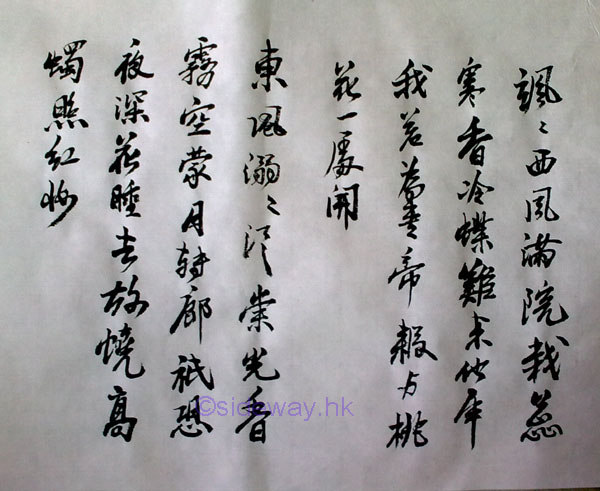 颯〻西風滿院栽蕊
寒香冷蝶難來他年
我若為青帝報与桃
花一處開
東風溺〻泛崇光香
霧空蒙月轉廊祇恐
夜深花睡去故燒高
燭照紅妝
©sideway.hk